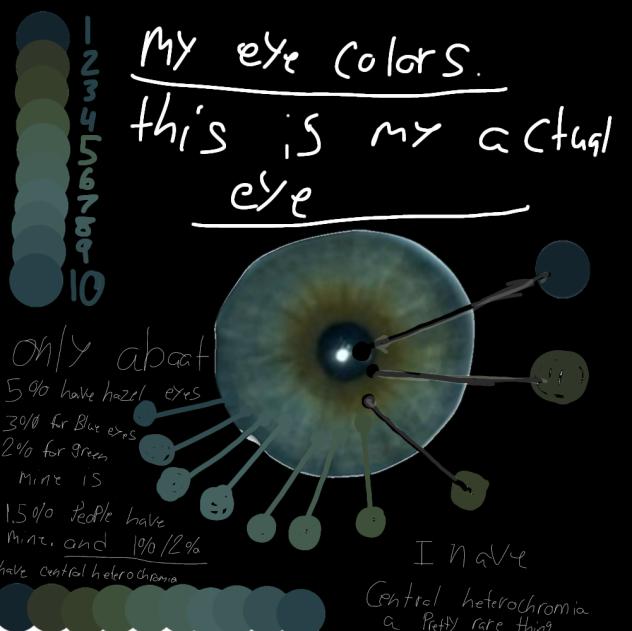 my eye colors.
this is my actual
eye
1
2
3
4
5
6
7
8
9
10
only about
5% have hazel eyes
3% for Blue eyes
2% for green
mine is
1.5% People have
mine. and 1%/2%
have central heterochromia
I have
Central heterochromia
a Pretty rare thing